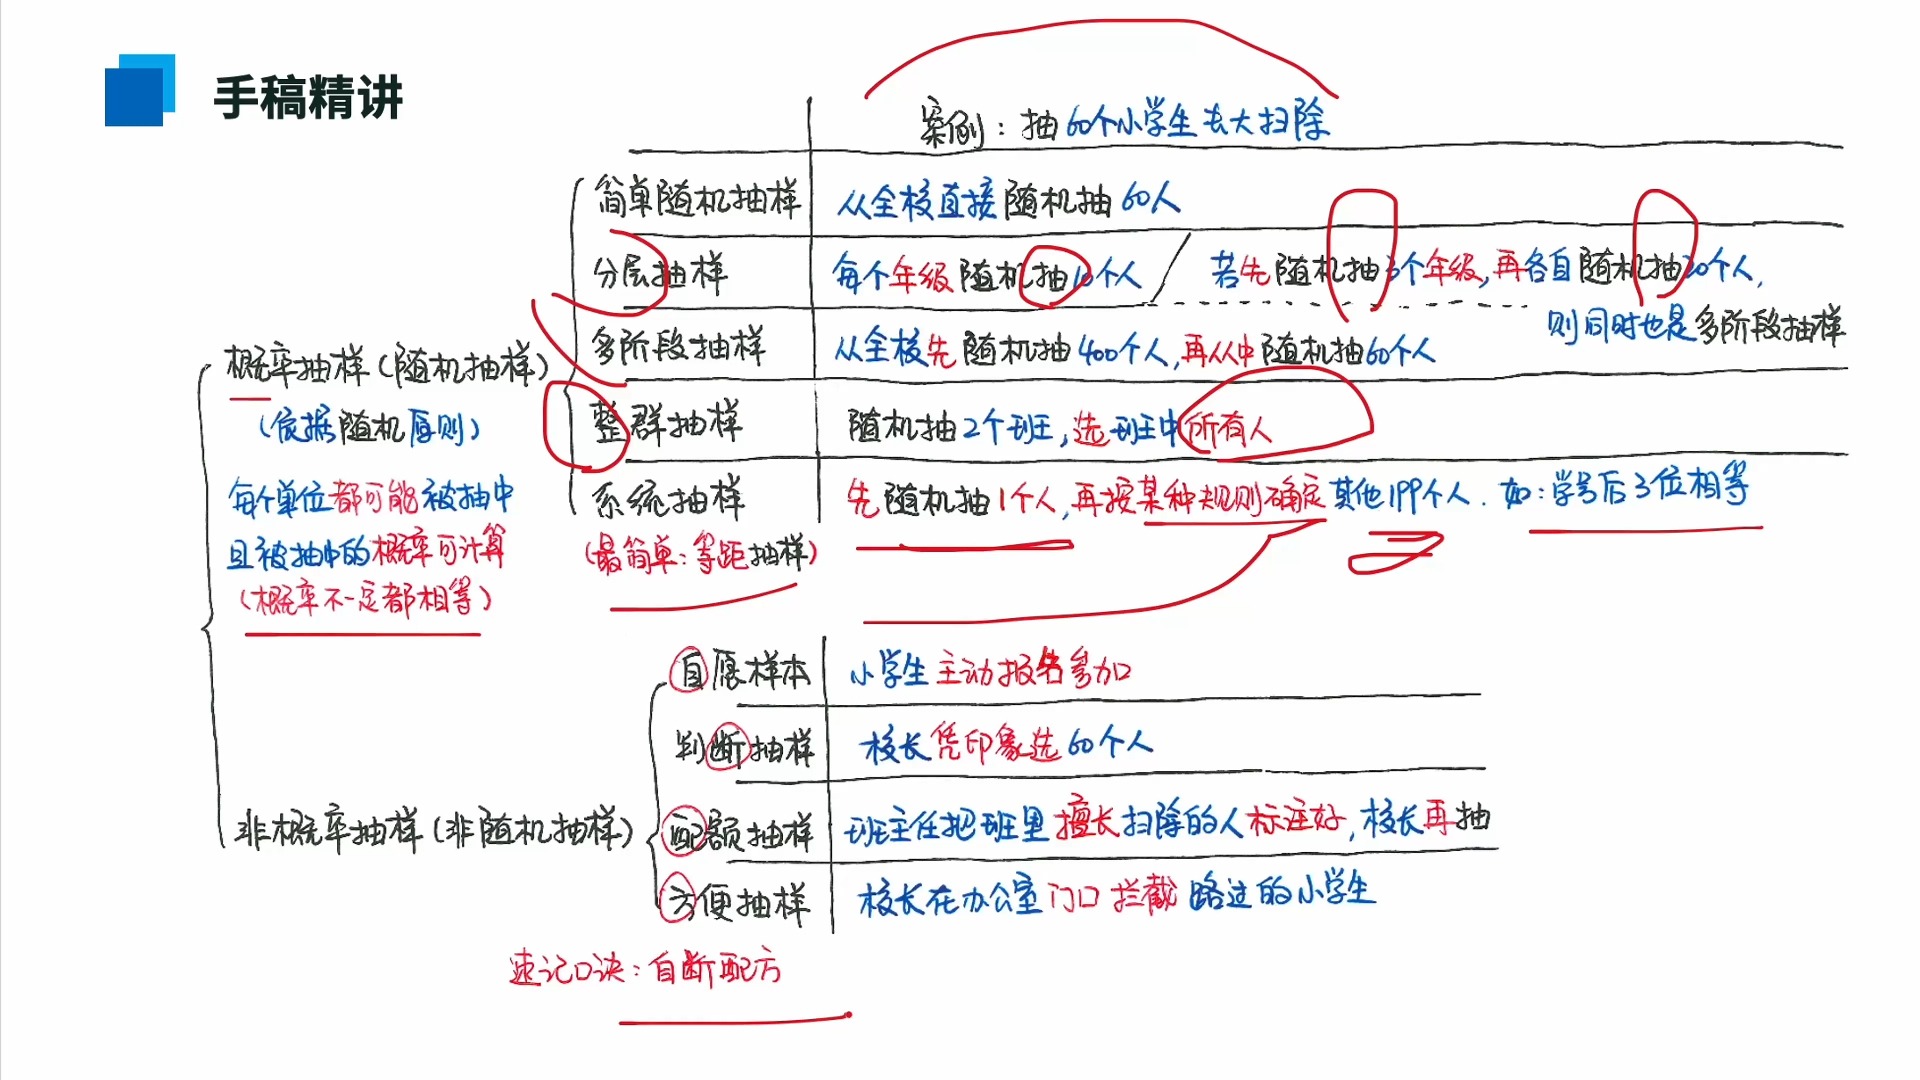 手稿精讲
案例：抽60个小学生去大扫除
简单随机抽样 从全校直接随机抽60人
分层抽样 每个年级随机抽10个人 / 若先随机抽3个年级,再各自随机抽20个人,
则同时也是多阶段抽样
多阶段抽样 从全校先随机抽400个人,再从中随机抽60个人
概率抽样(随机抽样)
(依据随机原则)
整群抽样 随机抽2个班,选班中所有人
每个单位都可能被抽中
系统抽样 先随机抽1个人,再按某种规则确定其他199个人. 如:学号后3位相等
且被抽中的概率可计算
(最简单:等距抽样)
(概率不一定都相等)
自愿样本 小学生主动报名参加
判断抽样 校长凭印象选60个人
非概率抽样(非随机抽样)
配额抽样 班主任把班里擅长扫除的人标注好,校长再抽
方便抽样 校长在办公室门口拦截路过的小学生
速记口诀:自断配方